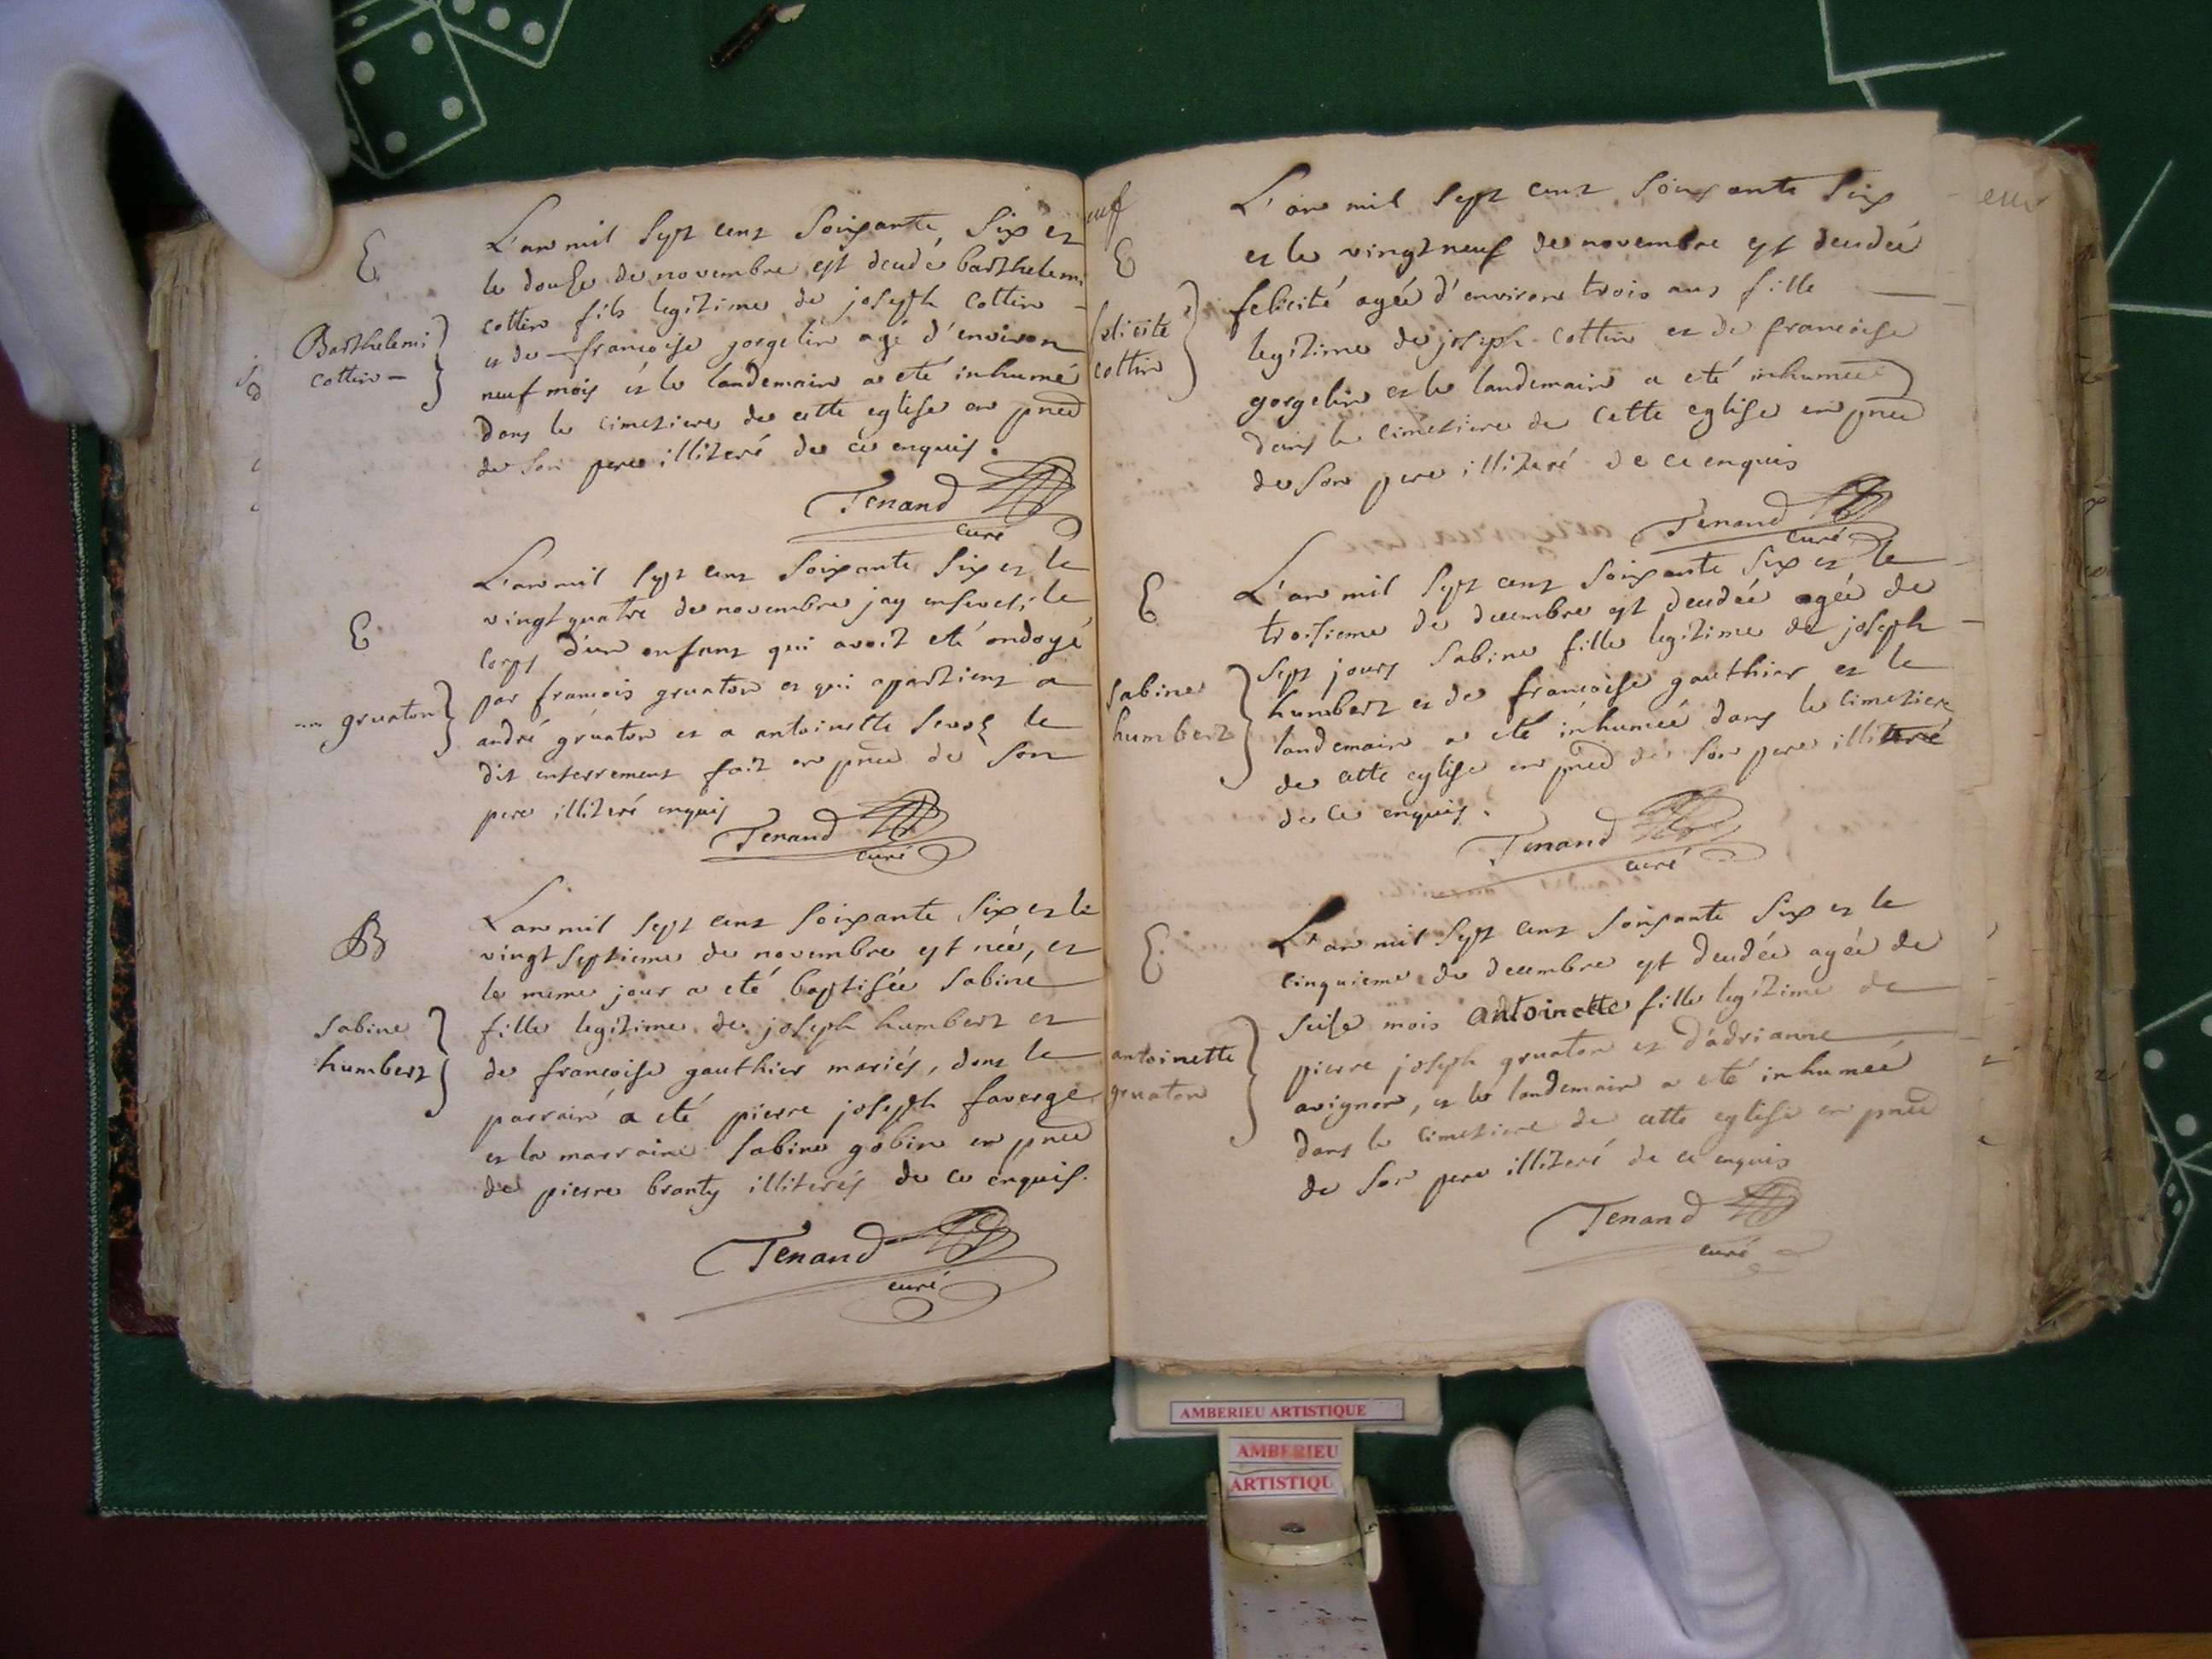 E
Barthelemi
cottin
L'an mil sept cent soixante six et
le douse de novembre est decedé barthelemi
cottin fils legitime de joseph cottin
et de francoise gorgelin agé d'environ
neuf mois et le landemain a eté inhumé
dans le cimetiere de cette eglise en pnce
de son pere illiteré de ce enquis.
Tenand
curé
E
gruaton
L'an mil sept cent soixante six et le
vingt quatre de novembre jay enseveli le
corps d'un enfant qui avoit eté ondoyé
par francois gruaton et qui apartient a
andré gruaton et a antoinette le
dit enterrement fait en pnce de son
pere illiteré enquis
Tenand
curé
B
Sabine
humbert
L'an mil sept cent soixante six et le
vingt septieme de novembre est née, et
le meme jour a eté baptisée Sabine
fille legitime de joseph humbert et
de francoise gauthier mariés, dont le
parrain a eté pierre joseph faverge
et la marraine Sabine gobin en pnce
de pierre branty illiterés de ce enquis.
Tenand
curé
E
felicité
cottin
L'an mil sept cent soixante six
et le vingt neuf de novembre est decedée
felicité agée d'environ trois ans fille
legitime de joseph cottin et de francoise
gorgelin et le landemain a eté inhumée
dans le cimetiere de cette eglise en pnce
de son pere illiteré de ce enquis
Tenand
curé
E
Sabine
humbert
L'an mil sept cent soixante six et le
troisieme de decembre est decedée agée de
sept jours Sabine fille legitime de joseph
humbert et de francoise gauthier et le
landemain a eté inhumée dans le cimetiere
de cette eglise en pnce de son pere illiteré
de ce enquis.
Tenand
curé
E
antoinette
gruaton
L'an mil sept cent soixante six et le
cinquieme de decembre est decedée agée de
seise mois antoinette fille legitime de
pierre joseph gruaton et d'adrianne
avignon, et le landemain a eté inhumée
dans le cimetiere de cette eglise en pnce
de son pere illiteré de ce enquis
Tenand
curé
AMBERIEU ARTISTIQUE
AMBERIEU
ARTISTIQU